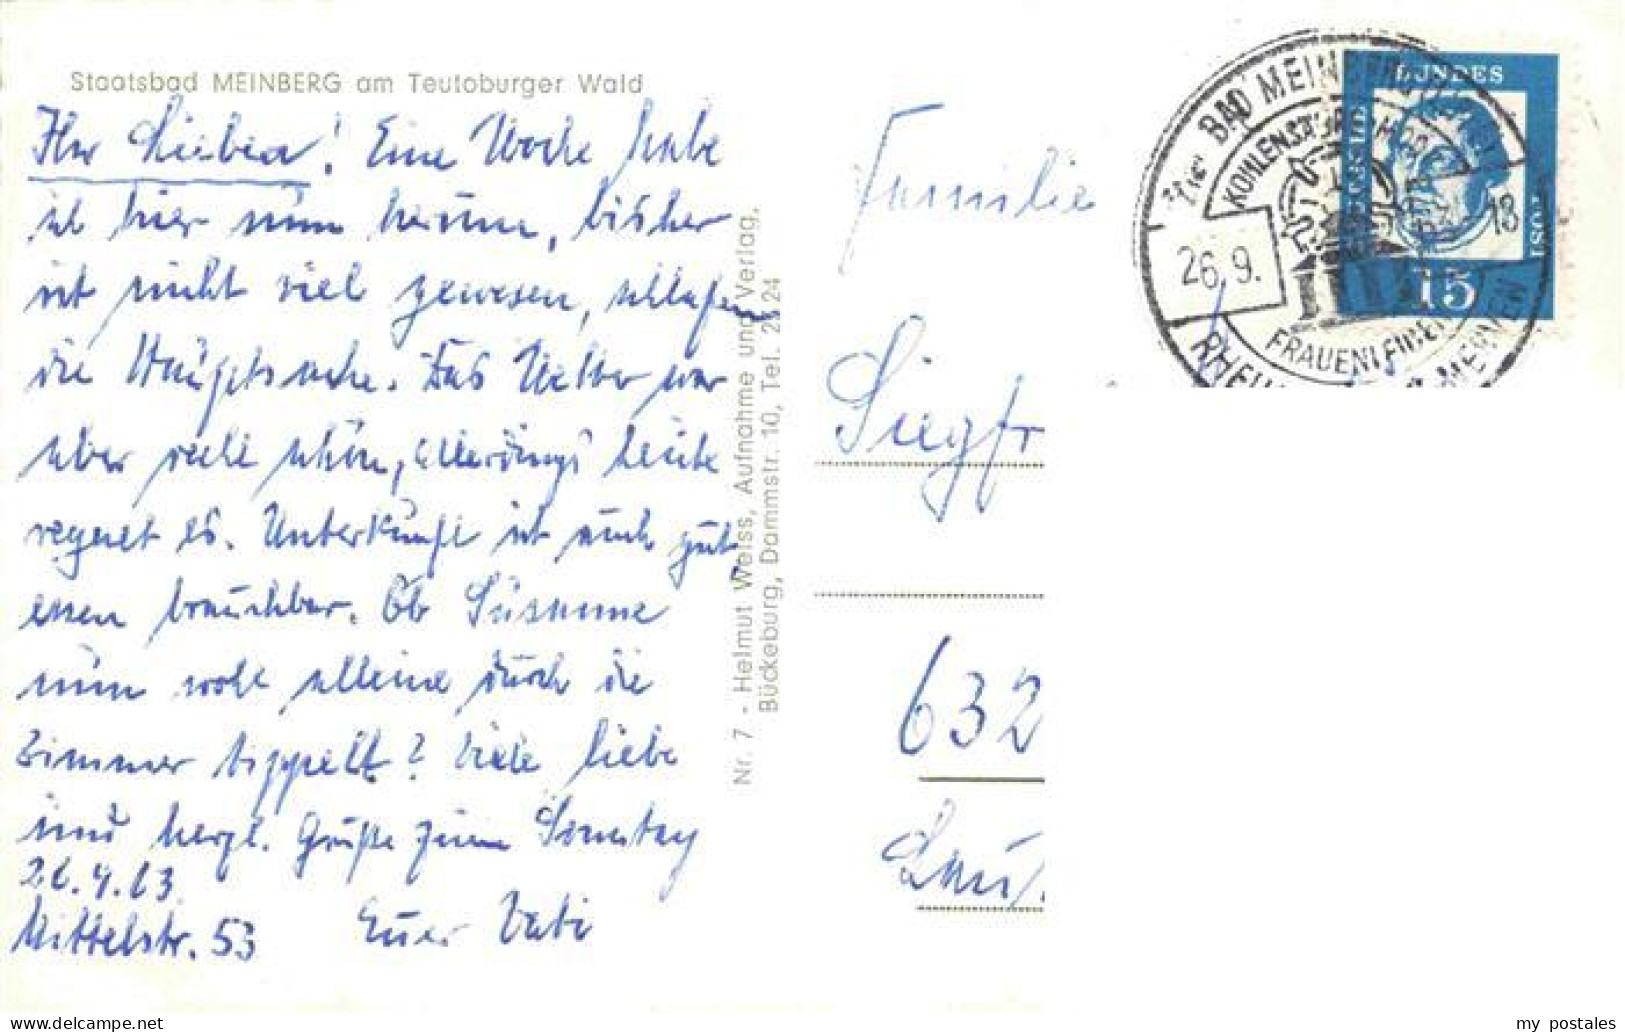 Staatsbad MEINBERG am Teutoburger Wald
Ihr Lieben! Eine Woche habe
ich hier nun herum, bisher
ist nicht viel gewesen, schlafen
die Hauptsache. Das Wetter war
aber recht schön, allerdings heute
regnet es. Unterkunft ist auch gut,
essen brauchbar. Ob Susanne
nun wohl alleine durch die
Zimmer tippelt? Viele liebe
und herzl. Grüße zum Sonntag
26.9.63
Mittelstr. 53 Euer Vati
Nr. 7 - Helmut Weiss, Aufnahme und Verlag,
Bückeburg, Dammstr. 10, Tel. 24
Familie
Siegfr
632
BAD MEINBERG
KOHLENSÄURE
26.9. 18
FRAUENLEIDEN
RHEUMA
BUNDES
POST
15
www.delcampe.net
my_postales